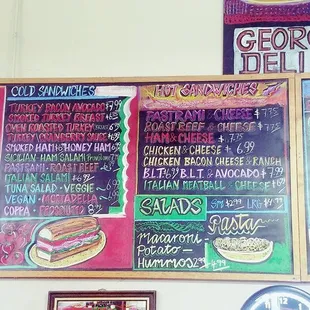 GEORG
DELI
COLD SANDWICHES
TURKEY BACON AVOCADO 7.99
SMOKED TURKEY BREAST
OVEN ROASTED TURKEY
TURKEY CRANBERRY SAUCE
SMOKED HAM & HONEY HAM
SICILIAN HAM SALAMI
PASTRAMI - ROAST BEEF
ITALIAN SALAMI
TUNA SALAD - VEGGIE
VEGAN - MORTADELLA
COPPA - PROSCIUTTO
HOT SANDWICHES
PASTRAMI & CHEESE $7.75
ROAST BEEF & CHEESE
HAM & CHEESE
CHICKEN & CHEESE 6.99
CHICKEN BACON CHEESE & RANCH
B.L.T B.L.T & AVOCADO 7.99
ITALIAN MEATBALL & CHEESE
SALADS
SM $2.99 LRG $4.99
Pasta
Macaroni-
Potato-
Hummos 2.99 4.99